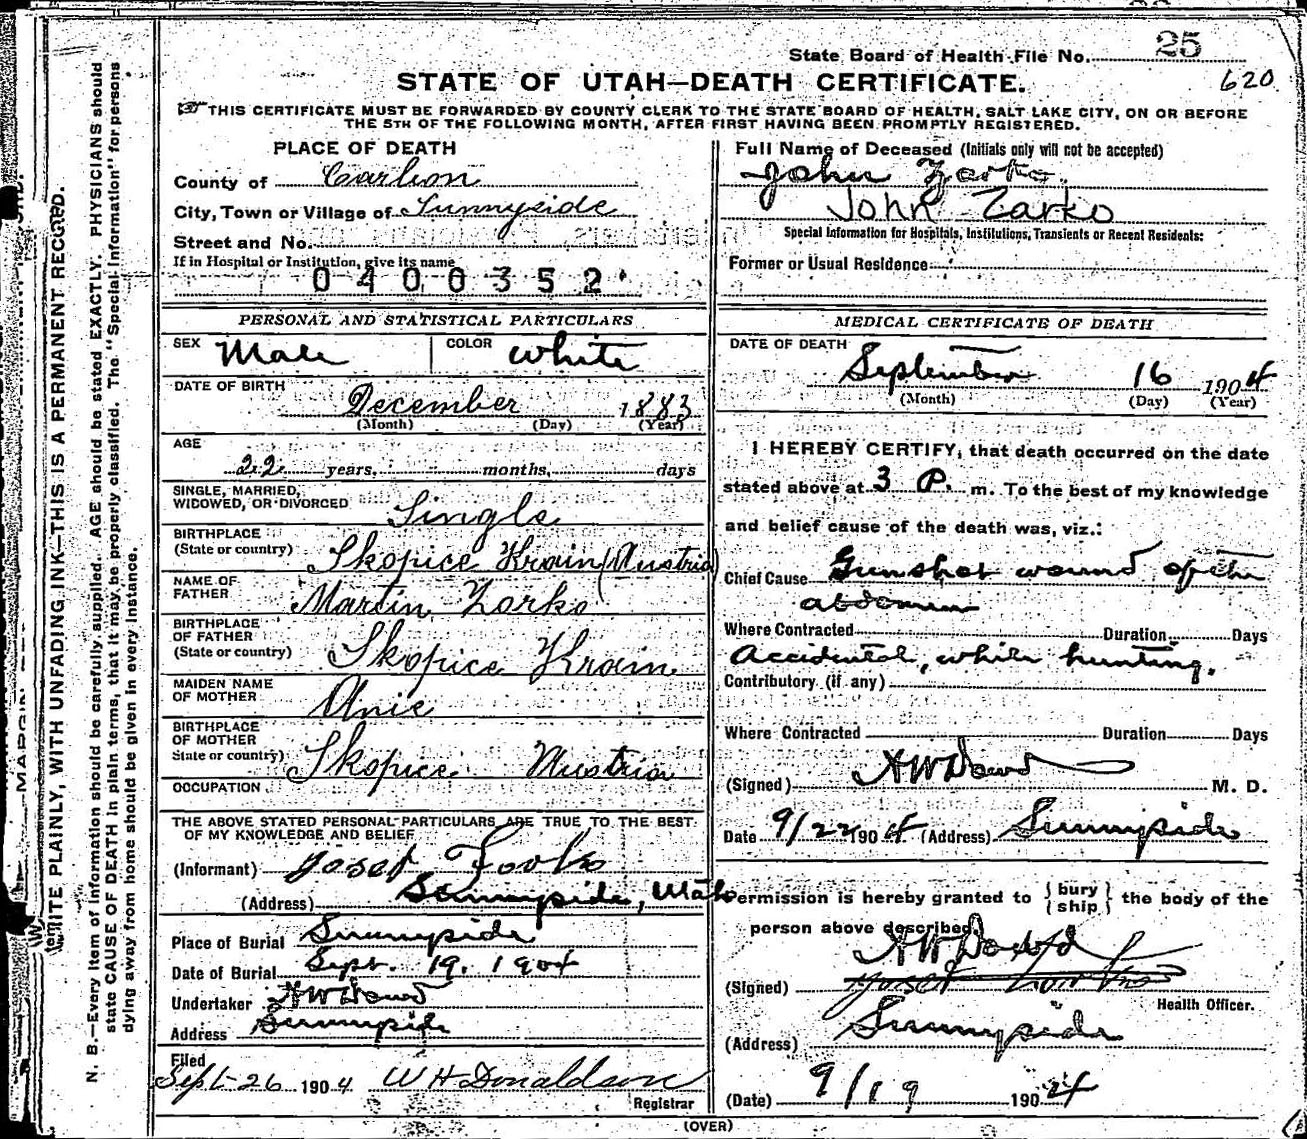 State Board of Health File No. 25
620
STATE OF UTAH—DEATH CERTIFICATE.
THIS CERTIFICATE MUST BE FORWARDED BY COUNTY CLERK TO THE STATE BOARD OF HEALTH, SALT LAKE CITY, ON OR BEFORE
THE 5TH OF THE FOLLOWING MONTH, AFTER FIRST HAVING BEEN PROMPTLY REGISTERED.
PLACE OF DEATH
County of Carbon
City, Town or Village of Sunnyside
Street and No.
If in Hospital or Institution, give its name
0400352
Full Name of Deceased (Initials only will not be accepted)
John Zarko.
John Zarko
Special Information for Hospitals, Institutions, Transients or Recent Residents:
Former or Usual Residence
PERSONAL AND STATISTICAL PARTICULARS
SEX Male COLOR white
DATE OF BIRTH
December 1883
(Month) (Day) (Year)
AGE
22 years, months, days
SINGLE, MARRIED,
WIDOWED, OR DIVORCED Single
BIRTHPLACE
(State or country) Skopice Krain (Austria)
NAME OF
FATHER Martin Zorko
BIRTHPLACE
OF FATHER
(State or country) Skopice Krain
MAIDEN NAME
OF MOTHER Anie
BIRTHPLACE
OF MOTHER
State or country) Skopice Austria
OCCUPATION
THE ABOVE STATED PERSONAL PARTICULARS ARE TRUE TO THE BEST
OF MY KNOWLEDGE AND BELIEF
(Informant) Josef
(Address) Sunnyside, Utah
Place of Burial Sunnyside
Date of Burial Sept. 19, 1904
Undertaker A W Dowd
Address Sunnyside
Filed
Sept 26 1904 W H Donaldson
Registrar
MEDICAL CERTIFICATE OF DEATH
DATE OF DEATH
September 16 1904
(Month) (Day) (Year)
I HEREBY CERTIFY, that death occurred on the date
stated above at 3 P. m. To the best of my knowledge
and belief cause of the death was, viz.:
Chief Cause Gunshot wound of the
abdomen
Where Contracted Duration Days
Accidental, while hunting.
Contributory (if any)
Where Contracted Duration Days
(Signed) A W Dowd M. D.
Date 9/22 1904 (Address) Sunnyside
Permission is hereby granted to { bury ship } the body of the
person above described.
A W Dowd
(Signed) Josef
Health Officer.
(Address) Sunnyside
(Date) 9/19 1904
(OVER)
WRITE PLAINLY, WITH UNFADING INK—THIS IS A PERMANENT RECORD.
N. B.—Every item of information should be carefully supplied. AGE should be stated EXACTLY. PHYSICIANS should
state CAUSE OF DEATH in plain terms, that it may be properly classified. The "Special Information" for persons
dying away from home should be given in every instance.